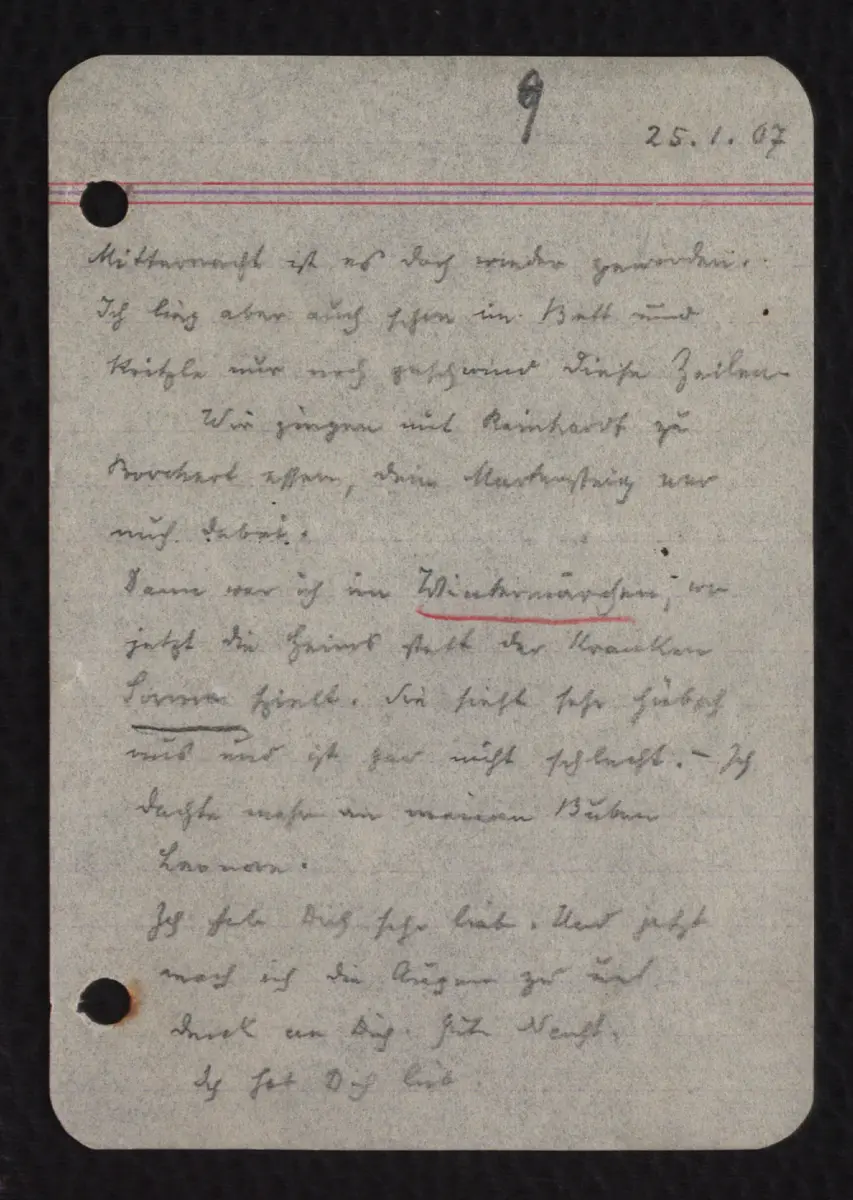 9
25.1.07
Mitternacht ist es doch wieder geworden.
Ich lieg aber auch schon im Bett und
kritzle nur noch geschwind diese Zeilen.
Wir gingen mit Reinhardt zu
Borchert essen, dein Martersteig war
auch dabei.
Dann war ich im Wintermärchen, wo
jetzt die Heims statt der kranken
Sorma spielt. Sie sieht sehr hübsch
aus und ist gar nicht schlecht. – Ich
dachte mehr an meinen Buben
Ich hab Dich sehr lieb. Und jetzt
mach ich die Augen zu und
denk an Dich. Gute Nacht.
Ich hab Dich lieb.